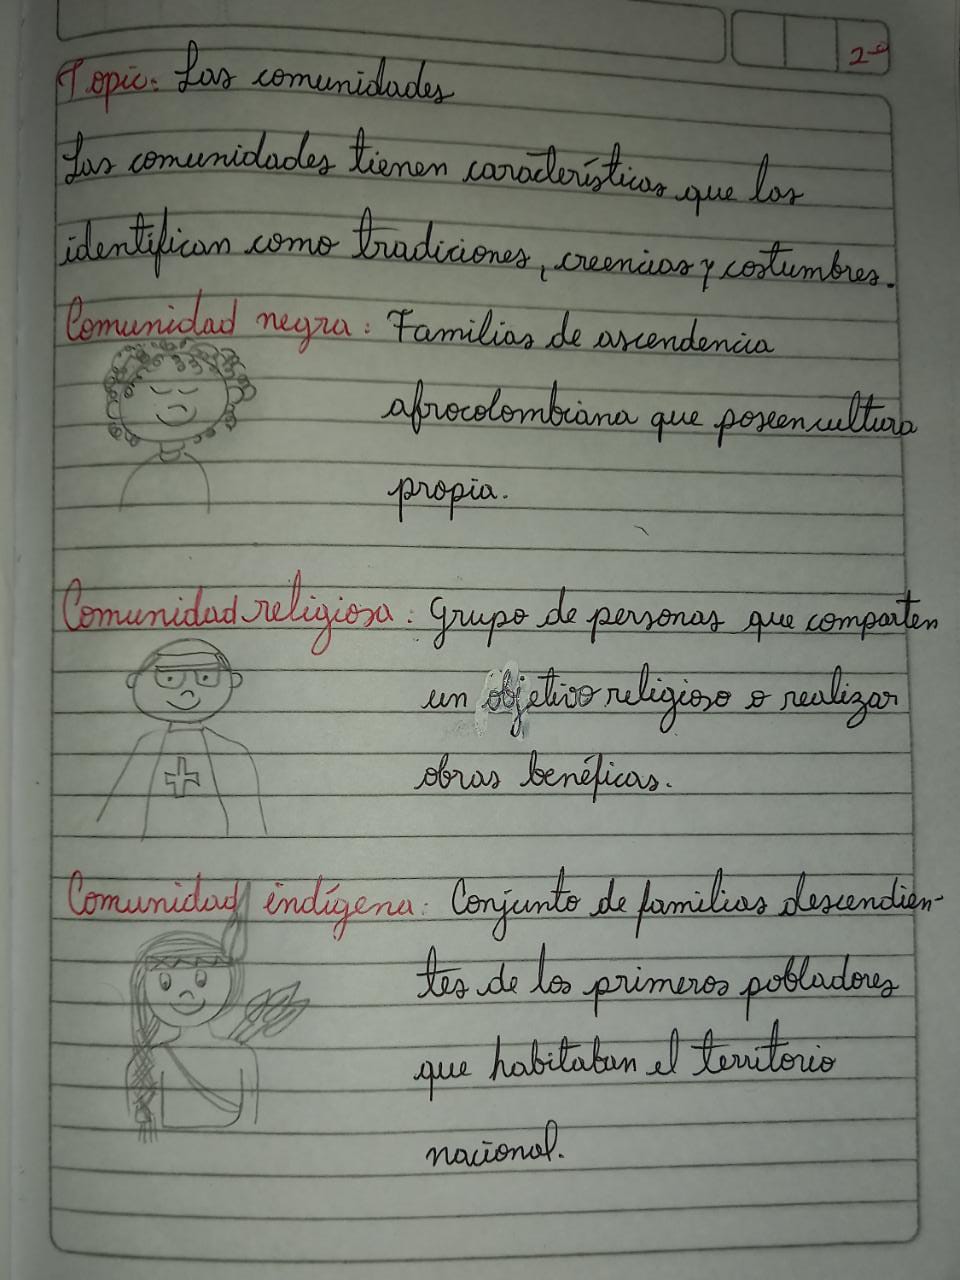 2-9
Topic: Las comunidades
Las comunidades tienen características que las
identifican como tradiciones, creencias y costumbres.
Comunidad negra: Familias de ascendencia
afrocolombiana que poseen cultura
propia.
Comunidad religiosa: Grupo de personas que comparten
un objetivo religioso o realizar
obras benéficas.
Comunidad indígena: Conjunto de familias descendien-
tes de los primeros pobladores
que habitaban el territorio
nacional.